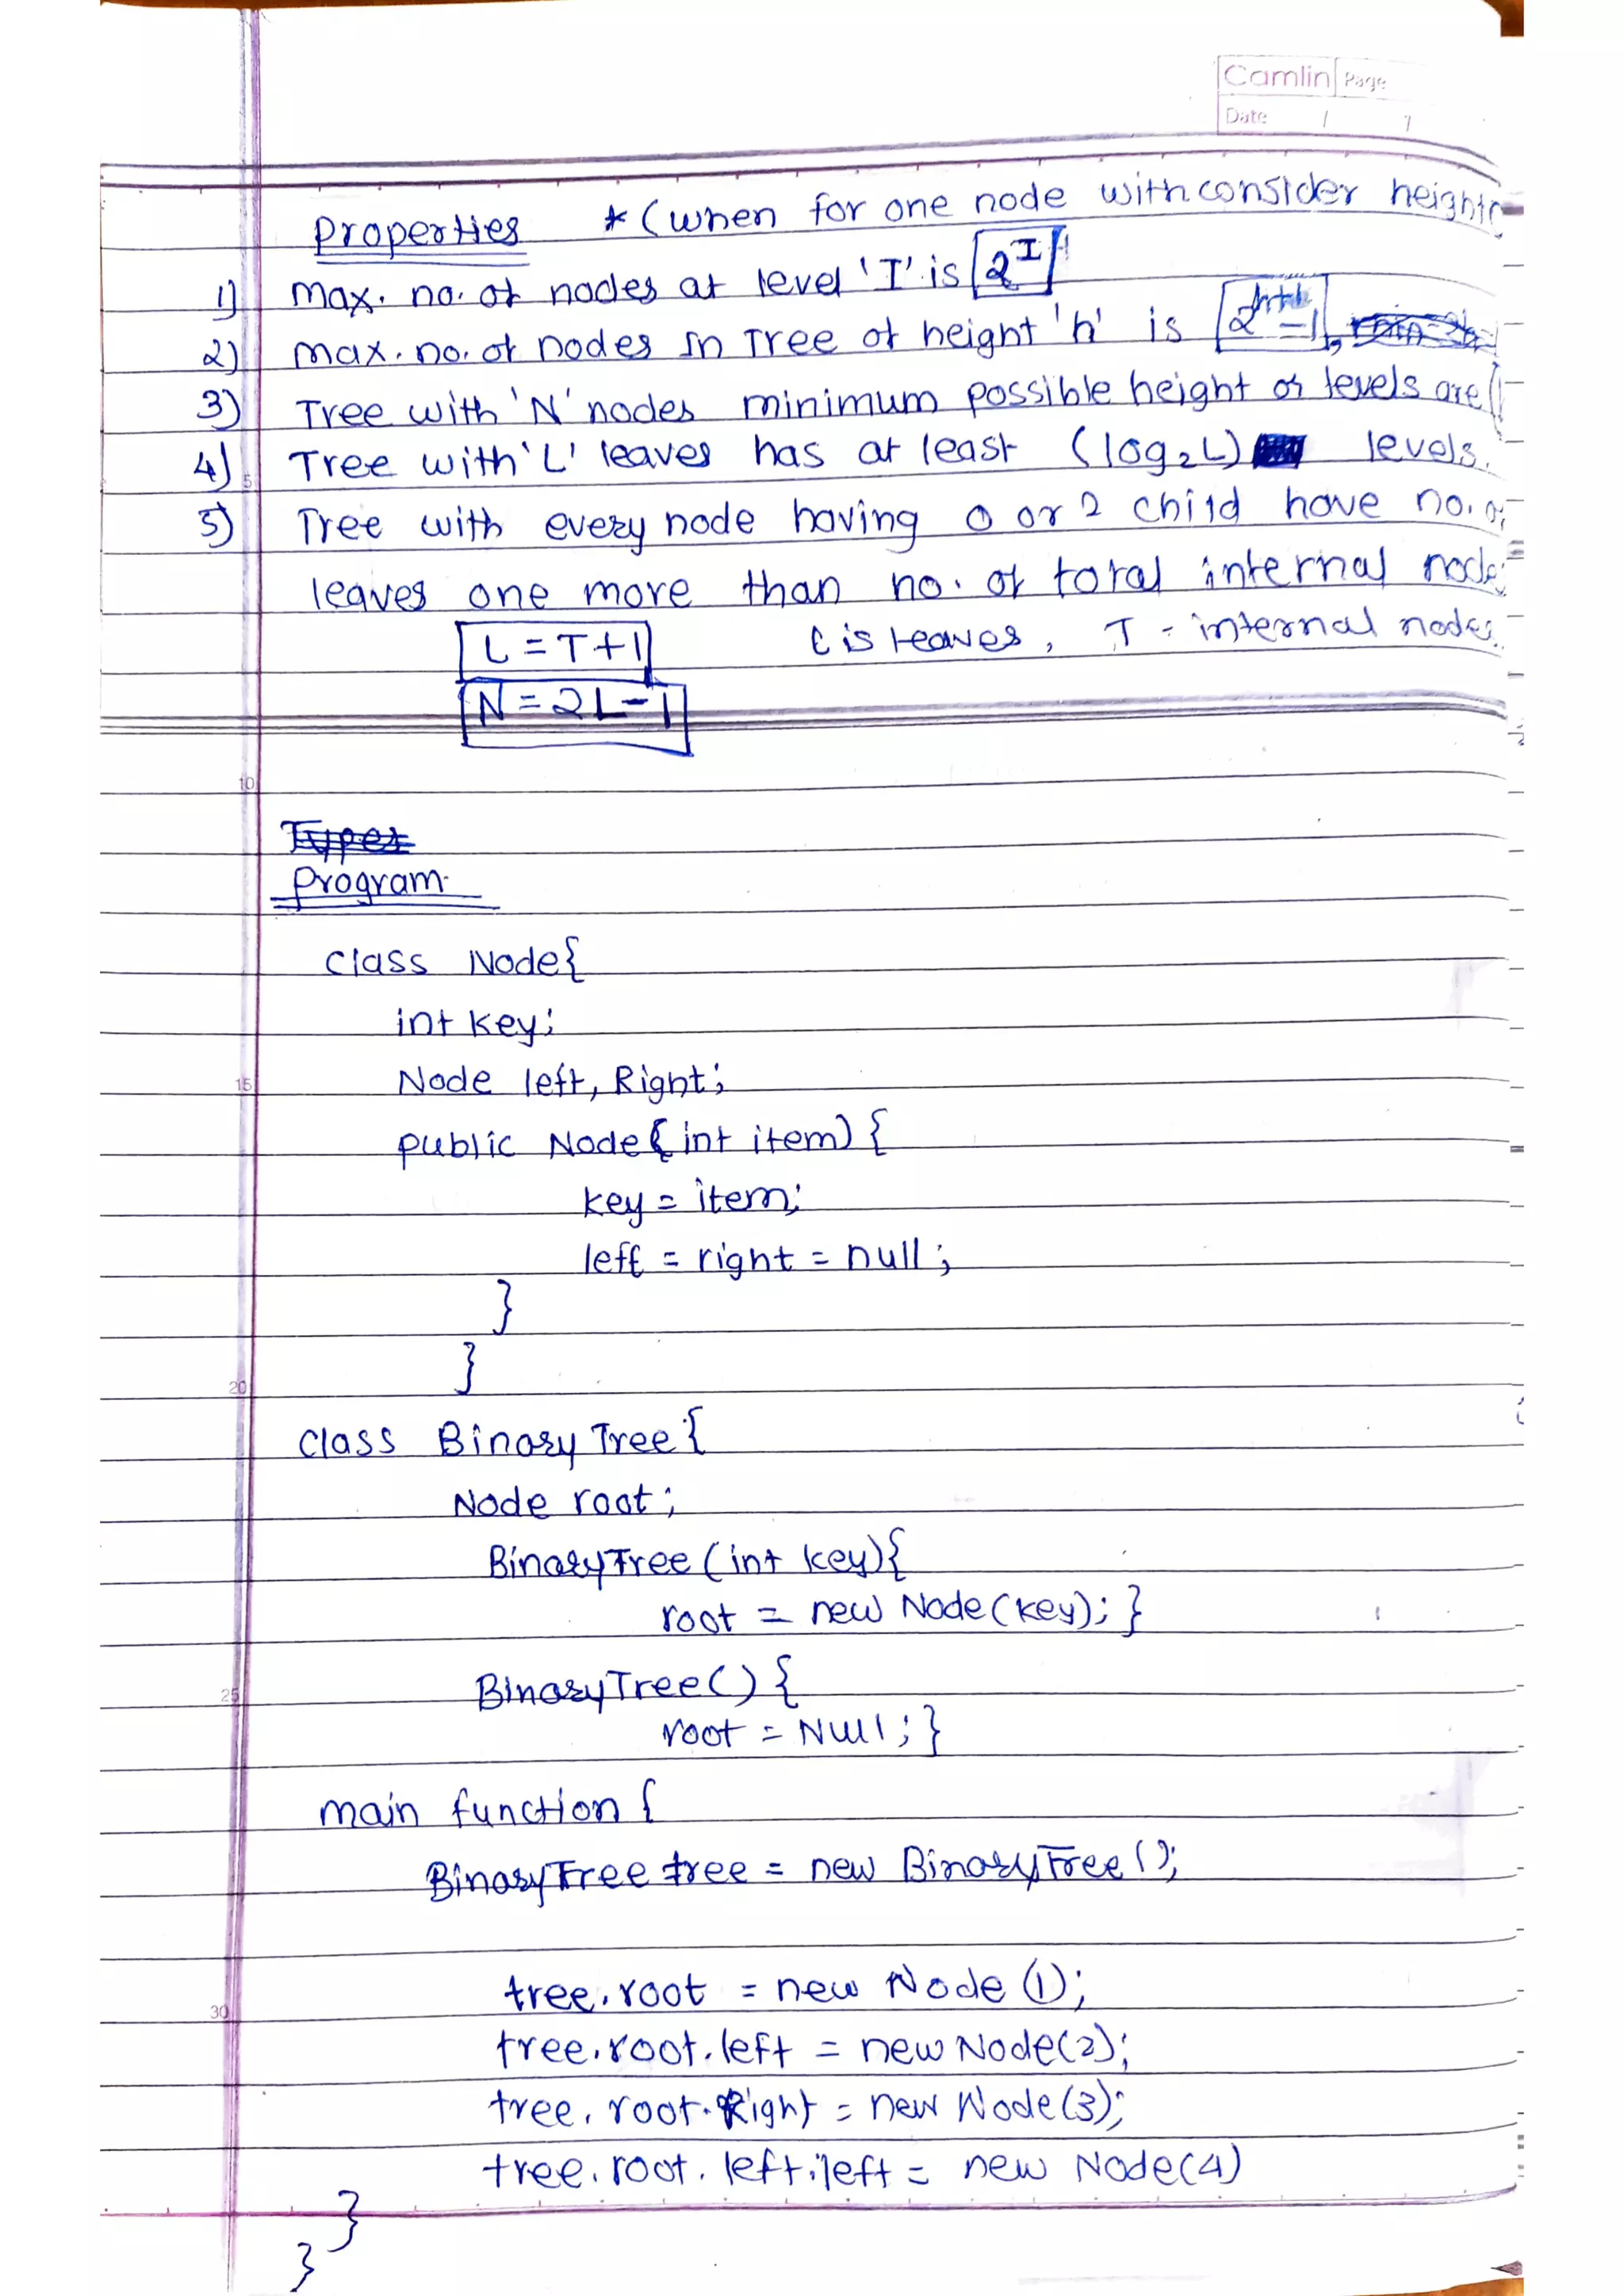 Camlin Page
Date / /
Properties * (when for one node with consider height
1) max. no. of nodes at level 'I' is 2^I
2) max. no. of nodes in Tree of height 'h' is 2^h+1 -1,
3) Tree with 'N' nodes minimum possible height or levels are
4) Tree with 'L' leaves has at least (log₂L) levels.
5
5) Tree with every node having 0 or 2 child have no. of
leaves one more than no. of total internal node
L = T+1 L is leaves, T - internal nodes.
N = 2L-1
10
Types
Program
class Node{
int key;
15 Node left, Right;
public Node(int item) {
key = item;
left = right = null;
}
20 }
class Binary Tree {
Node root;
BinaryTree (int key){
root = new Node (key); }
25 BinaryTree() {
root = Null; }
main function {
BinaryTree tree = new BinaryTree ();
30 tree. root = new Node (1);
tree. root. left = new Node(2);
tree. root. Right = new Node(3);
tree. root. left. left = new Node(4)
}
}